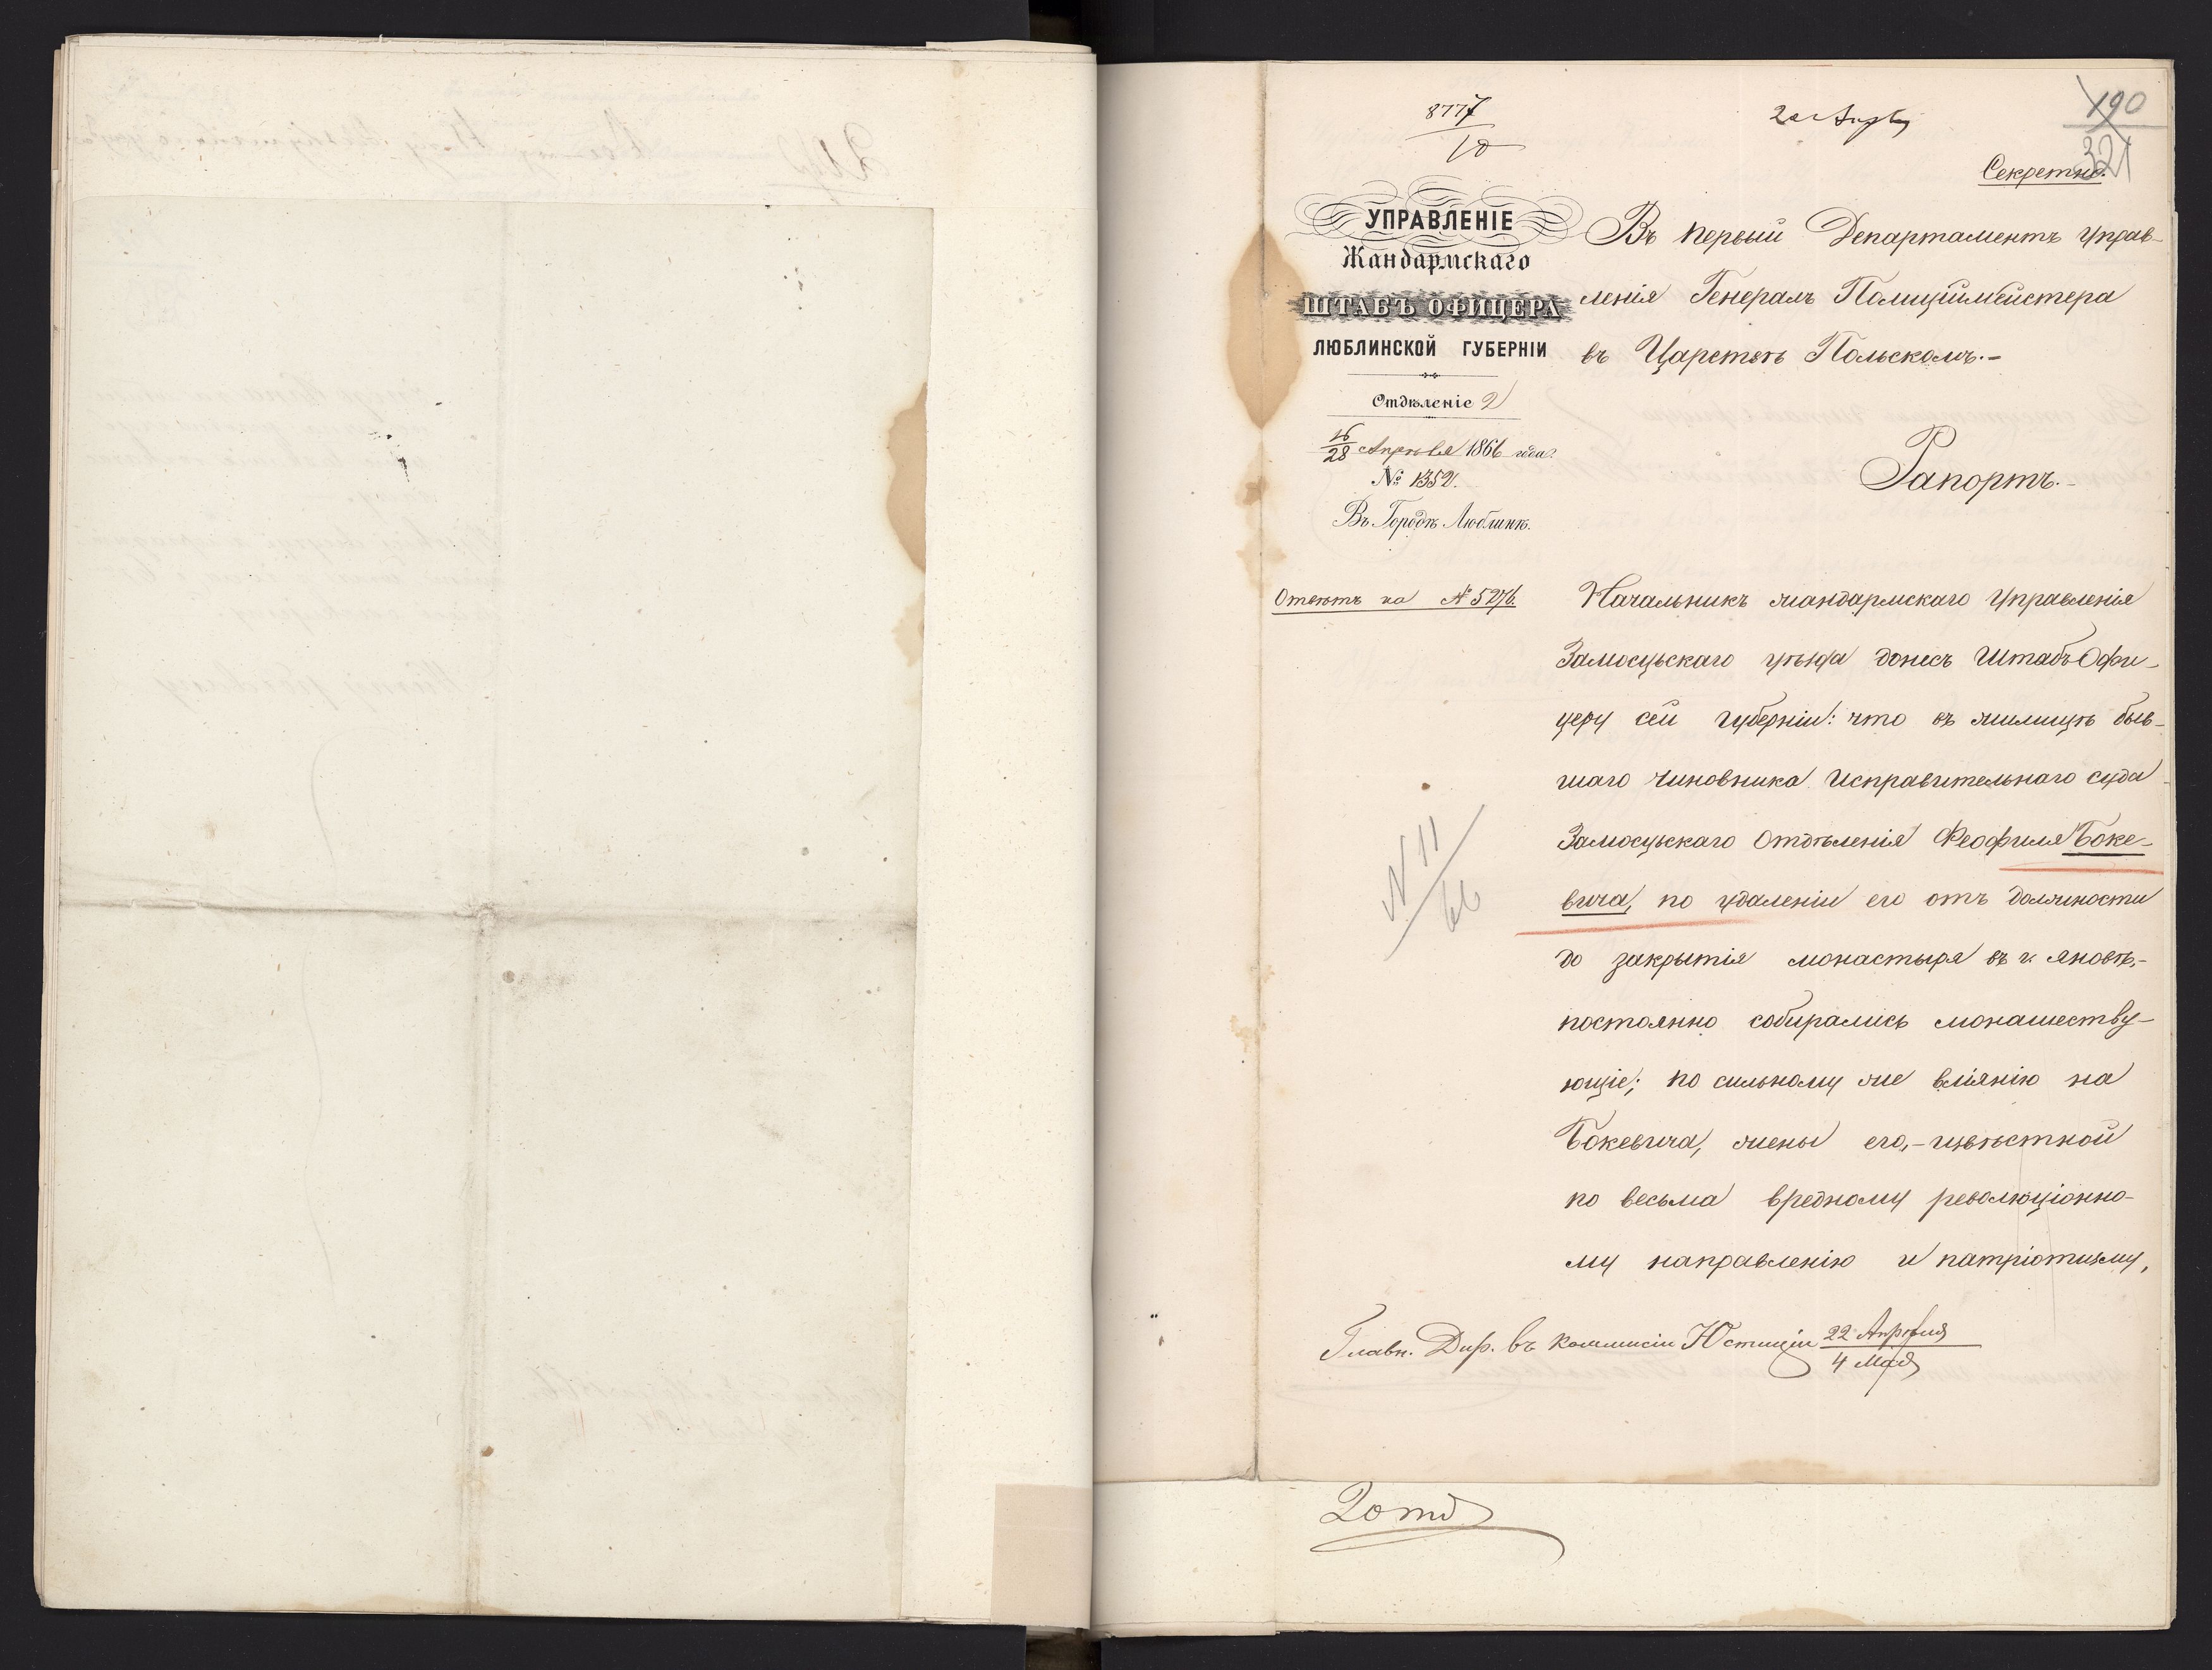 8777
10
20 Апр
190
321
Секретно.
УПРАВЛЕНІЕ
Жандармскаго
ШТАБЪ ОФИЦЕРА
ЛЮБЛИНСКОЙ ГУБЕРНІИ
Отдѣленіе 2
16/28 Апрѣля 1866 года.
№ 1352.
Въ Городѣ Люблинѣ.
Въ первый Департаментъ Управ-
ленія Генералъ Полиціймейстера
въ Царствѣ Польскомъ.-
Рапортъ.-
Отвѣтъ на № 5276.
Начальникъ жандармскаго Управленія
Замосцьскаго уѣзда донесъ Штабъ Офи-
церу сей губерніи: что въ жилищѣ быв-
шаго чиновника Исправительнаго суда
Замосцьскаго Отдѣленія Феофиля Боке-
вича, по удаленіи его отъ должности
до закрытія монастыря въ г. Яновѣ,-
постоянно собирались монашеству-
ющіе; по сильному же вліянію на
Бокевича, жены его,- извѣстной
по весьма вредному революціонно-
му направленію и патріотизму,
N 11
66
Главн. Дир. въ Коммисіи Юстиціи 22 Апрѣля
4 Мая
2 отд